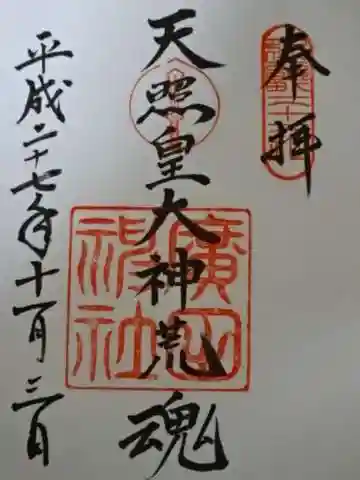 奉拝
天照皇大神荒魂
廣田神社
平成二十七年十一月三日